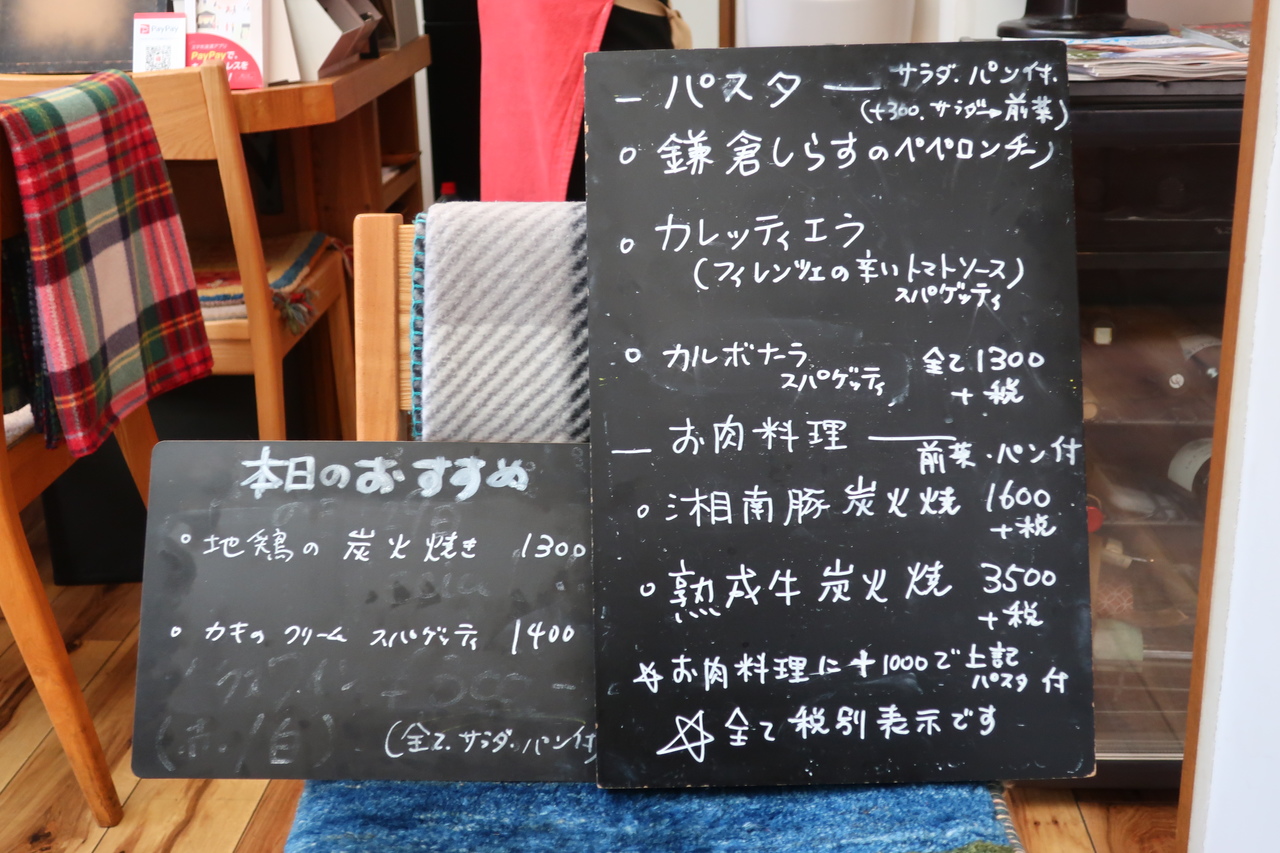 PayPay
PayPayで、
本日のおすすめ
○地鶏の 炭火焼き 1300
○カキの クリーム スパゲッティ 1400
(全て、サラダ・パン付
― パスタ ― サラダ・パン付.
(+300.サラダ→前菜)
○鎌倉しらすのペペロンチーノ
○カレッティエラ
(フィレンツェの辛いトマトソース)
スパゲッティ
○カルボナーラ
スパゲッティ
全て1300
+税
― お肉料理 ―
前菜・パン付
○湘南豚炭火焼 1600
+税
○熟成牛炭火焼 3500
+税
☆お肉料理に+1000で上記
パスタ付
☆全て税別表示です